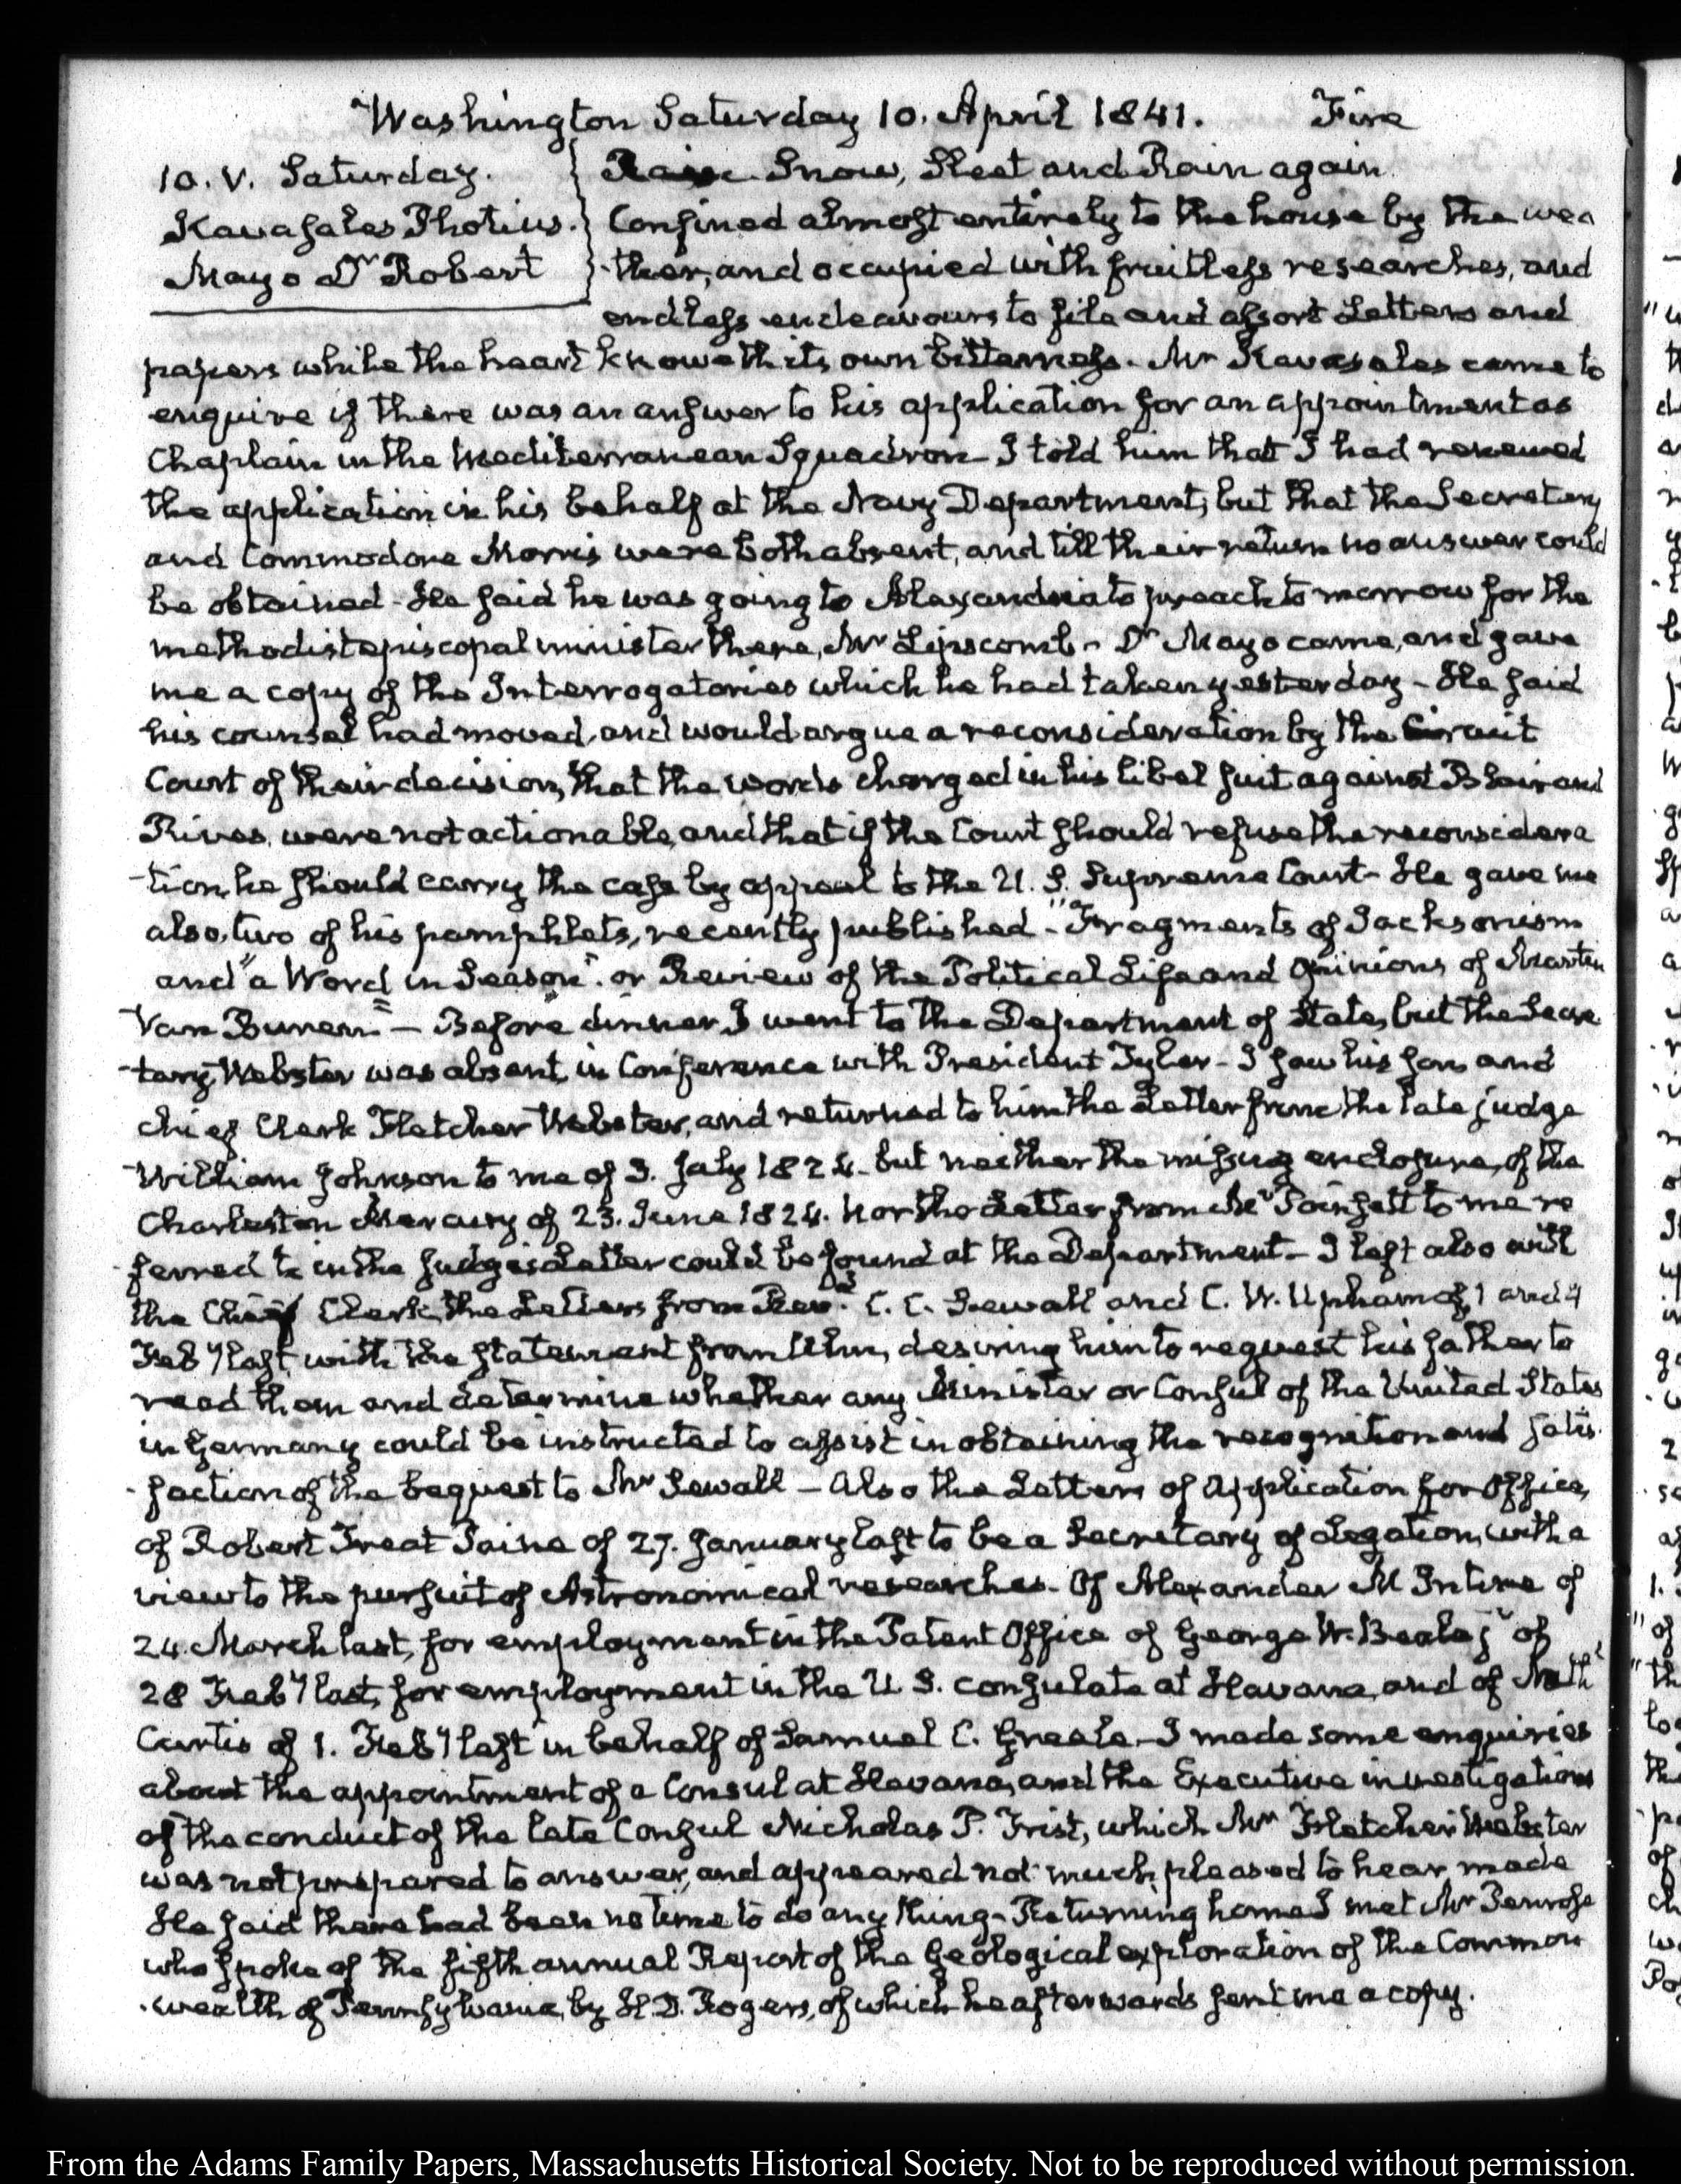 Washington Saturday 10. April 1841. Fire
10. V. Saturday.
Kavasales Photius.
Mayo Dr Robert
Rain. Snow, Sleet and Rain again
Confined almost entirely to the house by the wea
ther, and occupied with fruitless researches, and
endless endeavours to file and assort Letters and
papers while the heart knoweth its own bitterness. Mr Kavasales came to
enquire if there was an answer to his application for an appointment as
Chaplain in the Mediterranean Squadron - I told him that I had renewed
the application in his behalf at the Navy Department; but that the Secretary
and Commodore Morris were both absent, and till their return no answer could
be obtained - He said he was going to Alexandria to preach to morrow for the
methodist episcopal minister there, Mr Lipscomb - Dr Mayo came, and gave
me a copy of the Interrogatories which he had taken yesterday - He said
his counsel had moved, and would argue a reconsideration by the Circuit
Court of their decision, that the words charged in his libel suit against Blair and
Rives, were not actionable, and that if the Court should refuse the reconsidera
-tion, he should carry the case by appeal to the U. S. Supreme Court - He gave me
also, two of his pamphlets, recently published - "Fragments of Jacksonism
and "a Word in Season". or Review of the Political Life and Opinions of Martin
Van Buren" - Before dinner I went to the Department of State, but the Secre
-tary Webster was absent, in Conference with President Tyler - I saw his son and
chief Clerk Fletcher Webster, and returned to him the Letter from the late judge
William Johnson to me of 3. July 1824. but neither the missing enclosure, of the
Charleston Mercury of 23. June 1824. nor the Letter from Mr Poinsett to me re
-ferred to in the Judge's Letter could be found at the Department - I left also with
the Chief Clerk, the Letters from Revd. C. C. Sewall and C. W. Upham of 1 and 4
Feby last, with the statement from Ulm, desiring him to request his father to
read them and determine whether any Minister or Consul of the United States
in Germany could be instructed to assist in obtaining the recognition and satis
-faction of the bequest to Mr Sewall - Also the Letters of Application for Office,
of Robert Treat Paine of 27. January last to be a Secretary of Legation, with a
view to the pursuit of Astronomical researches - Of Alexander McIntire of
24. March last, for employment in the Patent Office of George W. Beale jr of
28 Feby last, for employment in the U. S. consulate at Havana, and of Nathl
Curtis of 1. Feby last in behalf of Samuel C. Greele - I made some enquiries
about the appointment of a Consul at Havana, and the Executive investigations
of the conduct of the late Consul Nicholas P. Trist, which Mr Fletcher Webster
was not prepared to answer, and appeared not much pleased to hear made
He said there had been no time to do any thing - Returning home I met Mr Penrose
who spoke of the fifth annual Report of the Geological exploration of the Common
-wealth of Pennsylvania, by H. D. Rogers, of which he afterwards sent me a copy.
From the Adams Family Papers, Massachusetts Historical Society. Not to be reproduced without permission.